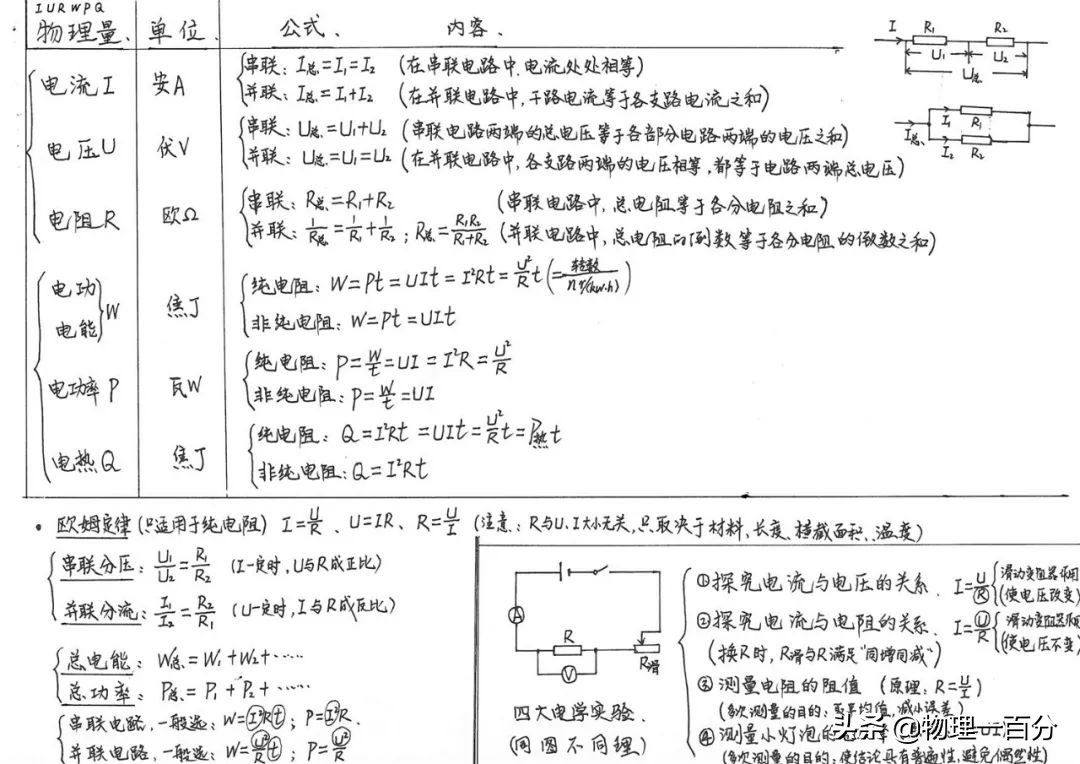 IURWPQ
物理量、 单位、 公式、 内容、
电流I 安A
串联：I总=I₁=I₂ （在串联电路中，电流处处相等）
并联：I总=I₁+I₂ （在并联电路中，干路电流等于各支路电流之和）
电压U 伏V
串联：U总=U₁+U₂ （串联电路两端的总电压等于各部分电路两端的电压之和）
并联：U总=U₁=U₂ （在并联电路中，各支路两端的电压相等，都等于电路两端总电压）
电阻R 欧Ω
串联：R总=R₁+R₂ （串联电路中，总电阻等于各分电阻之和）
并联：1/R总=1/R₁+1/R₂；R总=R₁R₂/R₁+R₂ （并联电路中，总电阻的倒数等于各分电阻的倒数之和）
电功 电能 W 焦J
纯电阻：W=Pt=UIt=I²Rt=U²/R t(=转数/n r/(kw·h))
非纯电阻：W=Pt=UIt
电功率P 瓦W
纯电阻：P=W/t=UI=I²R=U²/R
非纯电阻：P=W/t=UI
电热Q 焦J
纯电阻：Q=I²Rt=UIt=U²/R t=P热t
非纯电阻：Q=I²Rt
I R₁ R₂
U₁ U₂
U总
I₁ R₁
I总 I₂ R₂
• 欧姆定律（只适用于纯电阻） I=U/R、U=IR、R=U/I （注意：R与U、I大小无关，只取决于材料，长度、横截面积、温度）
串联分压：U₁/U₂=R₁/R₂ （I一定时，U与R成正比）
并联分流：I₁/I₂=R₂/R₁ （U一定时，I与R成反比）
总电能：W总=W₁+W₂+……
总功率：P总=P₁+P₂+……
串联电路，一般选：W=I²Rt；P=I²R
并联电路，一般选：W=U²/R t；P=U²/R
A R V R滑
四大电学实验、
（同图不同理）
①探究电流与电压的关系、I=U/R
滑动变阻器作用
（使电压改变）
②探究电流与电阻的关系、I=U/R
滑动变阻器作用
（使电压不变）
（换R时，R滑与R满足"同增同减"）
③测量电阻的阻值 （原理：R=U/I）
（多次测量的目的：求平均值，减小误差）
④测量小灯泡的
（多次测量的目的：使结论具有普遍性，避免偶然性）
头条@物理一百分